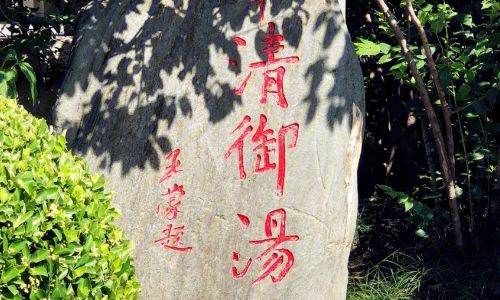 清御湯
王蒙題